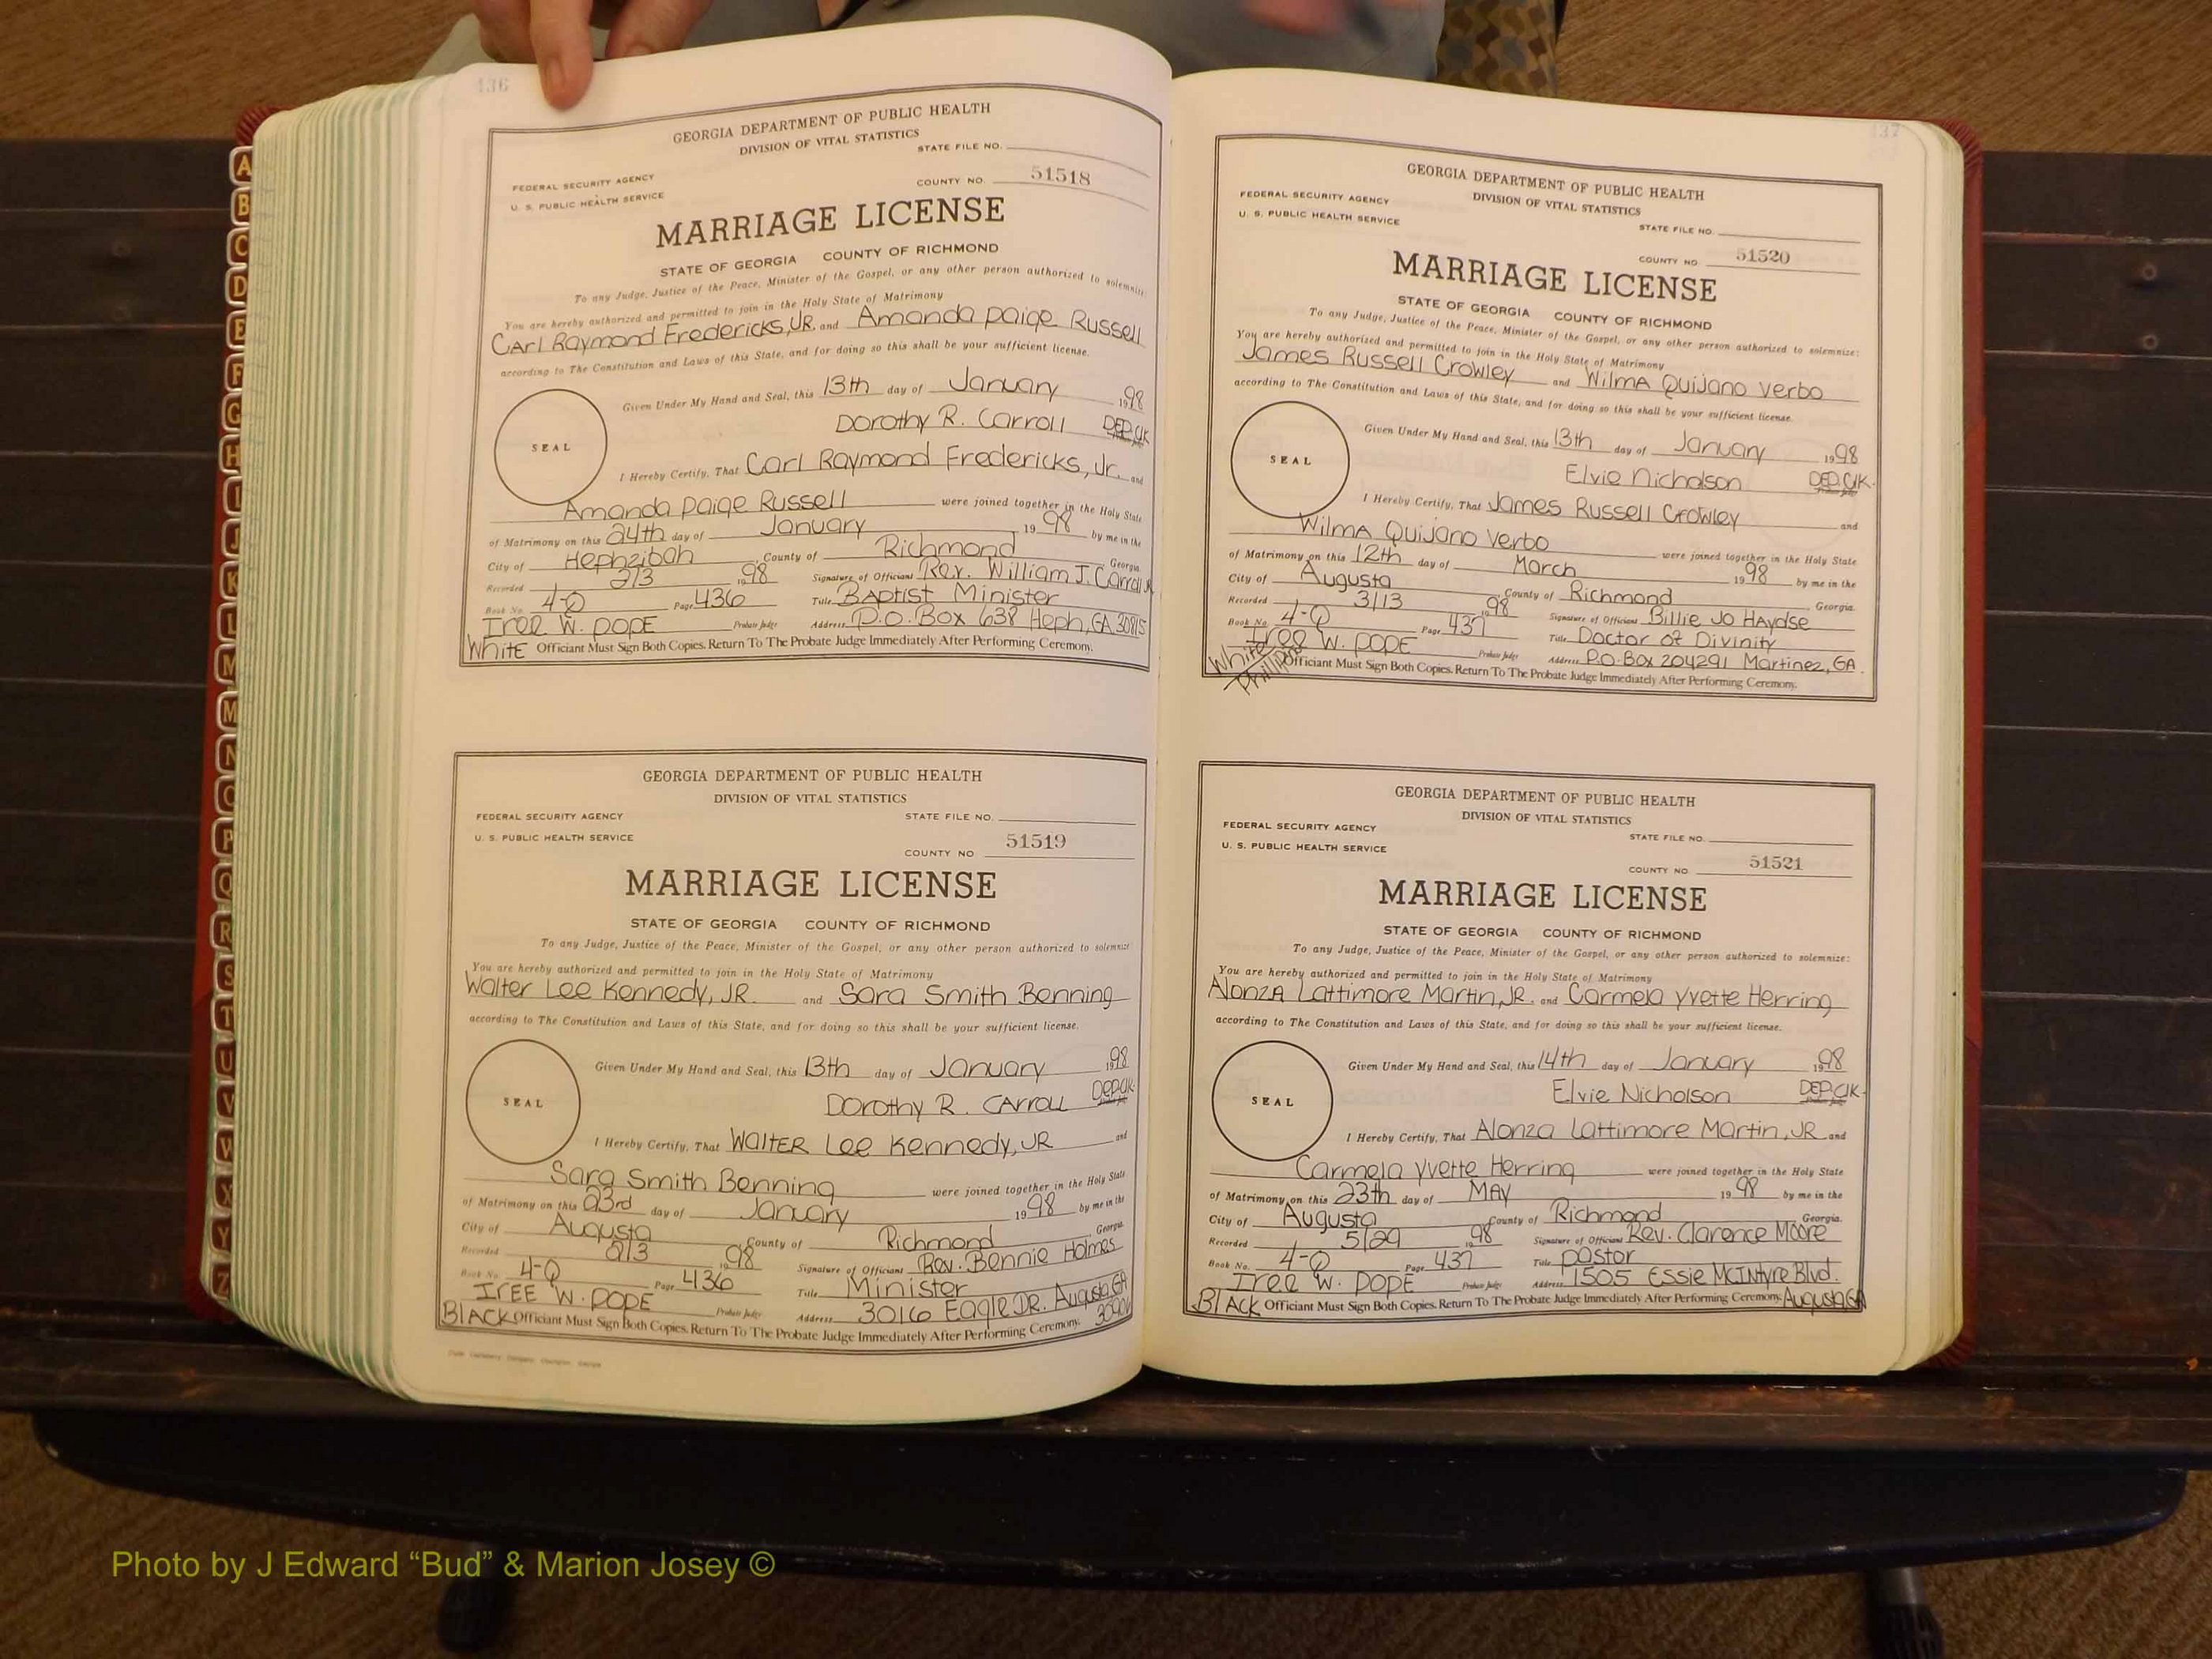 436
GEORGIA DEPARTMENT OF PUBLIC HEALTH
DIVISION OF VITAL STATISTICS
STATE FILE NO.
FEDERAL SECURITY AGENCY
U. S. PUBLIC HEALTH SERVICE
COUNTY NO. 51518
MARRIAGE LICENSE
STATE OF GEORGIA COUNTY OF RICHMOND
To any Judge, Justice of the Peace, Minister of the Gospel, or any other person authorized to solemnize:
You are hereby authorized and permitted to join in the Holy State of Matrimony
Carl Raymond Fredericks, JR. and Amanda Paige Russell
according to The Constitution and Laws of this State, and for doing so this shall be your sufficient license.
Given Under My Hand and Seal, this 13th day of January 1998
Dorothy R. Carroll DEP. Clk
SEAL
I Hereby Certify, That Carl Raymond Fredericks, Jr. and
Amanda Paige Russell were joined together in the Holy State
of Matrimony on this 24th day of January 1998 by me in the
City of Hephzibah, County of Richmond Georgia.
Recorded 2/3 1998 Signature of Officiant Rev. William J. Carroll
Book No. 4-Q Page 436 Title Baptist Minister
Iree W. Pope Probate Judge Address P.O. Box 638 Heph, GA 30815
White Officiant Must Sign Both Copies. Return To The Probate Judge Immediately After Performing Ceremony.
GEORGIA DEPARTMENT OF PUBLIC HEALTH
DIVISION OF VITAL STATISTICS
FEDERAL SECURITY AGENCY STATE FILE NO.
U. S. PUBLIC HEALTH SERVICE
COUNTY NO 51519
MARRIAGE LICENSE
STATE OF GEORGIA COUNTY OF RICHMOND
To any Judge, Justice of the Peace, Minister of the Gospel, or any other person authorized to solemnize
You are hereby authorized and permitted to join in the Holy State of Matrimony
Walter Lee Kennedy, JR. and Sara Smith Benning
according to The Constitution and Laws of this State, and for doing so this shall be your sufficient license.
Given Under My Hand and Seal, this 13th day of January 1998
Dorothy R. Carroll DEP. Clk
SEAL
I Hereby Certify, That Walter Lee Kennedy, JR and
Sara Smith Benning were joined together in the Holy State
of Matrimony on this 23rd day of January 1998 by me in the
City of Augusta, County of Richmond Georgia.
Recorded 2/3 1998 Signature of Officiant Rev. Bennie Holmes
Book No. 4-Q Page 436 Title Minister
Iree W. Pope Probate Judge Address 3016 Eagle DR. Augusta, GA
Black Officiant Must Sign Both Copies. Return To The Probate Judge Immediately After Performing Ceremony.
437
GEORGIA DEPARTMENT OF PUBLIC HEALTH
DIVISION OF VITAL STATISTICS
FEDERAL SECURITY AGENCY
U. S. PUBLIC HEALTH SERVICE
STATE FILE NO.
COUNTY NO 51520
MARRIAGE LICENSE
STATE OF GEORGIA COUNTY OF RICHMOND
To any Judge, Justice of the Peace, Minister of the Gospel, or any other person authorized to solemnize:
You are hereby authorized and permitted to join in the Holy State of Matrimony
James Russell Crowley and Wilma Quijano Verbo
according to The Constitution and Laws of this State, and for doing so this shall be your sufficient license.
Given Under My Hand and Seal, this 13th day of January 1998
Elvie Nicholson DEP. Clk.
SEAL
I Hereby Certify, That James Russell Crowley and
Wilma Quijano Verbo were joined together in the Holy State
of Matrimony on this 12th day of March 1998 by me in the
City of Augusta County of Richmond Georgia.
Recorded 3/13 1998 Signature of Officiant Billie Jo Haydse
Book No. 4-Q Page 437 Title Doctor of Divinity
Iree W. Pope Probate Judge Address P.O. Box 204291 Martinez, GA.
White Officiant Must Sign Both Copies. Return To The Probate Judge Immediately After Performing Ceremony.
GEORGIA DEPARTMENT OF PUBLIC HEALTH
DIVISION OF VITAL STATISTICS
FEDERAL SECURITY AGENCY
STATE FILE NO.
U. S. PUBLIC HEALTH SERVICE
COUNTY NO. 51521
MARRIAGE LICENSE
STATE OF GEORGIA COUNTY OF RICHMOND
To any Judge, Justice of the Peace, Minister of the Gospel, or any other person authorized to solemnize:
You are hereby authorized and permitted to join in the Holy State of Matrimony
Alonza Lattimore Martin, JR. and Carmela Yvette Herring
according to The Constitution and Laws of this State, and for doing so this shall be your sufficient license.
Given Under My Hand and Seal, this 14th day of January 1998
Elvie Nicholson DEP. Clk.
SEAL
I Hereby Certify, That Alonza Lattimore Martin, JR and
Carmela Yvette Herring were joined together in the Holy State
of Matrimony on this 23th day of May 1998 by me in the
City of Augusta County of Richmond Georgia.
Recorded 5/29 1998 Signature of Officiant Rev. Clarence Moore
Book No. 4-Q Page 437 Title Pastor
Iree W. Pope Probate Judge Address 1505 Essie McIntyre Blvd.
Black Officiant Must Sign Both Copies. Return To The Probate Judge Immediately After Performing Ceremony. Augusta GA
A
B
C
D
E
F
G
H
I
J
K
L
M
M
N
O
P
Q
R
S
T
U
V
W
X
Y
Z
Photo by J Edward “Bud” & Marion Josey ©